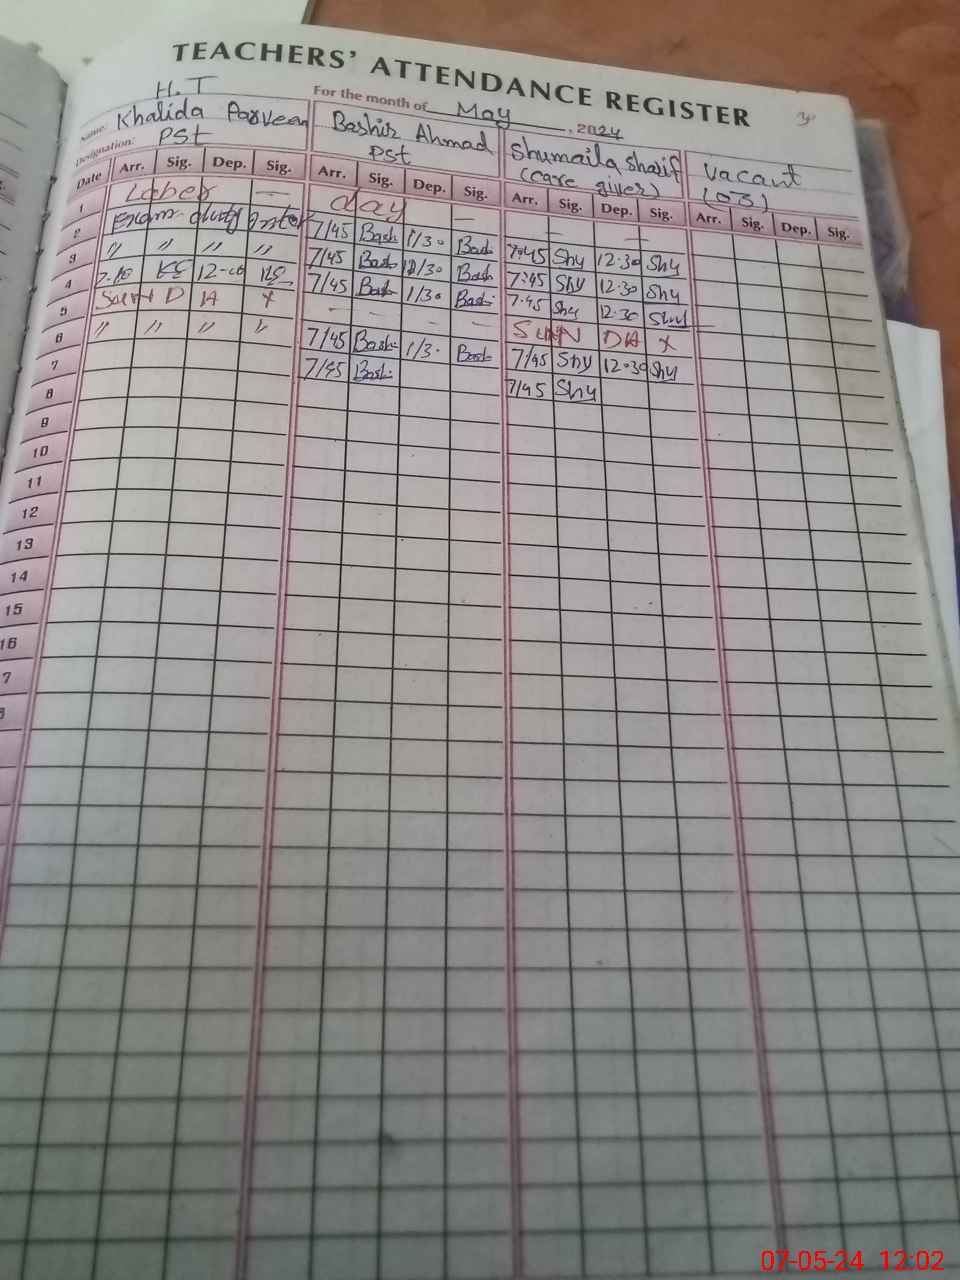 TEACHERS' ATTENDANCE REGISTER
H.T
For the month of May, 2024
Name: Khalida Parveen Bashir Ahmad Shumaila Sharif Vacant
Designation: PSt PSt (care giver)
Date Arr. Sig. Dep. Sig. Arr. Sig. Dep. Sig. Arr. Sig. Dep. Sig. Arr. Sig. Dep. Sig.
1 Laber — day — — —
2 Exam duty 7/45 Bash 1/30 Bash 7:45 Shy 12:30 Shy
3 〃 〃 〃 〃 7/45 Bash 12/30 Bash 7:45 Shy 12:30 Shy
4 KE 7/45 Bash 1/30 Bash 7.45 Shy 12:30 Shy
5 Sun D A x - - - - SUN DA x
6 〃 〃 〃 〃 7/45 Bash 1/3. Bash 7/45 Shy 12.30 Shy
7 7/45 Bash 7/45 Shy
8
9
10
11
12
13
14
15
16
7
07-05-24 12:02